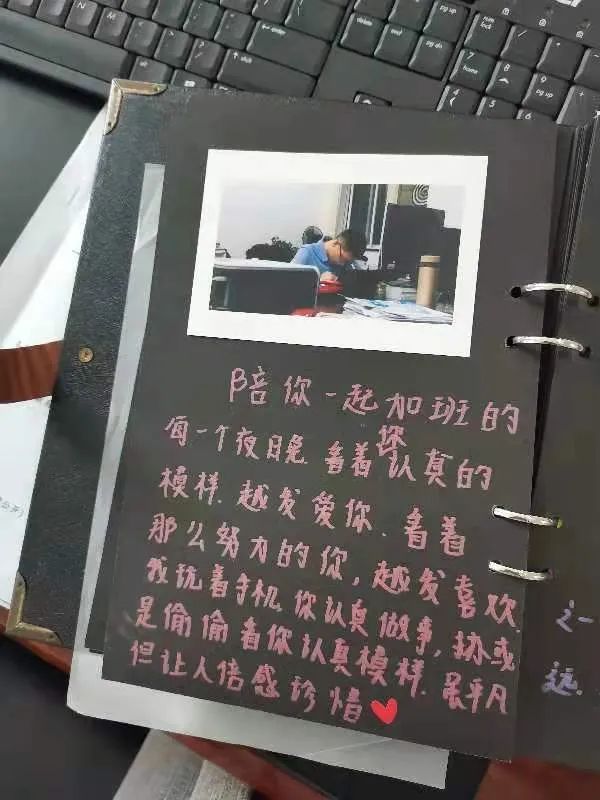 陪你一起加班的
每一个夜晚.看着您认真的
模样.越发爱你.看着
那么努力的你，越发喜欢.
我玩着手机.你认真做事，抑或
是偷偷看你认真模样.虽平凡
但让人倍感珍惜❤
之一
远.